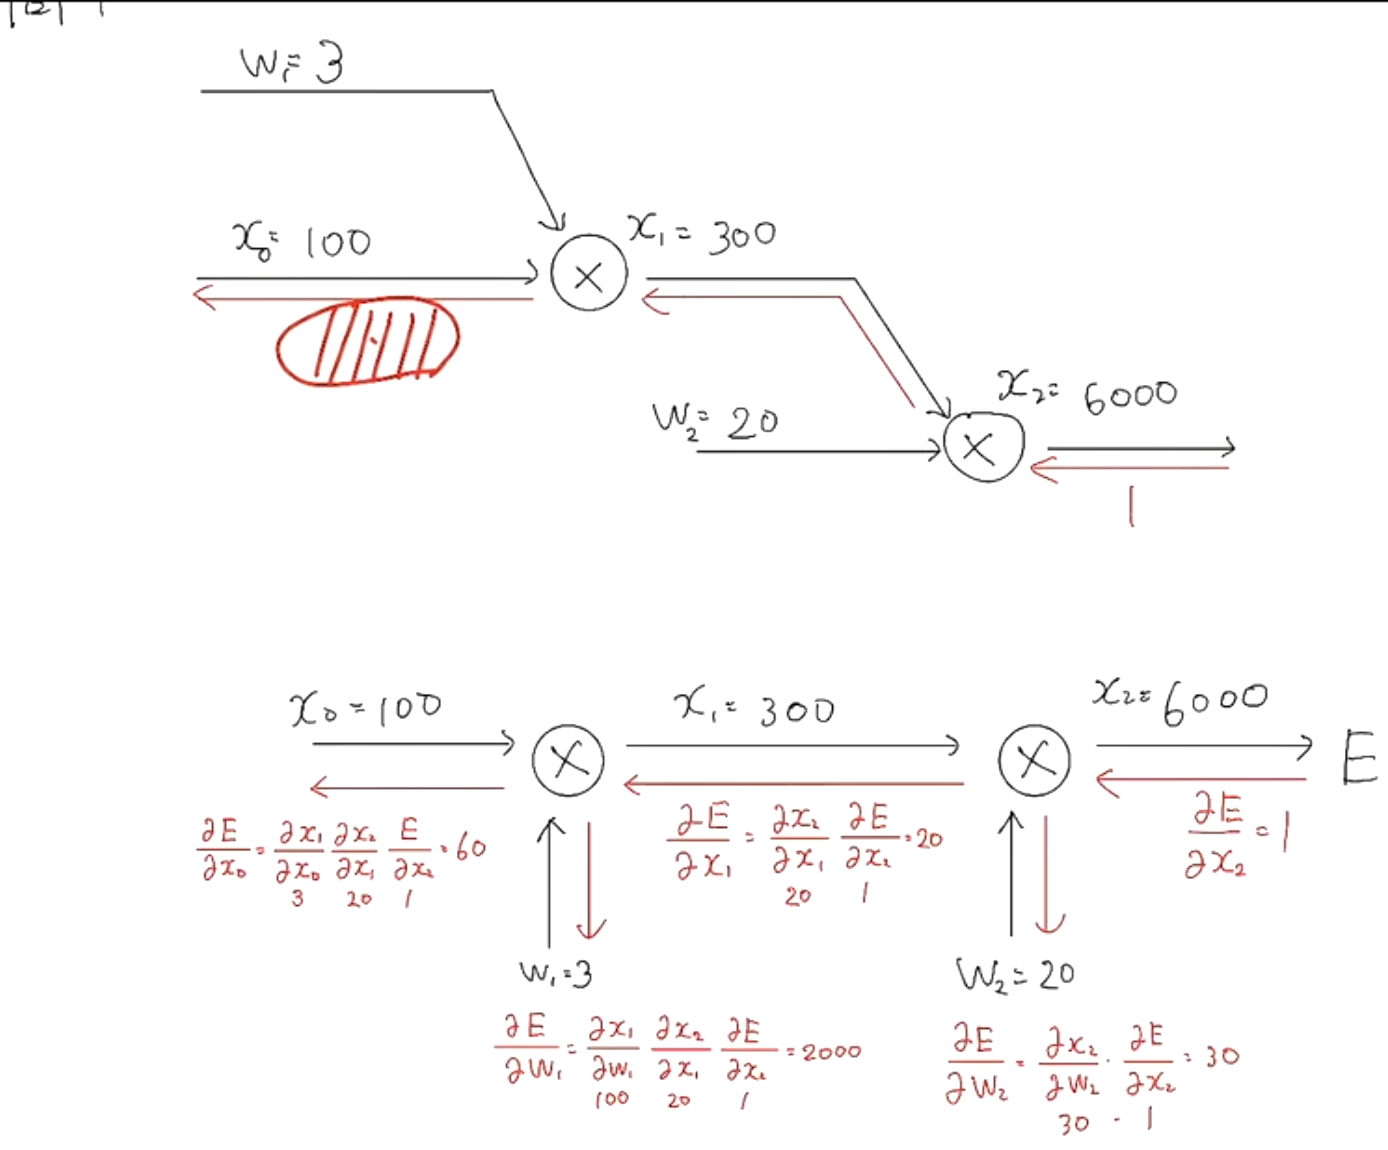 W₁=3
x₀= 100
x₁= 300
x
x₂= 6000
W₂= 20
x
1
x₀=100
x₁= 300
x₂= 6000
x
x
E
∂E/∂x₀ = ∂x₁/∂x₀ ∂x₂/∂x₁ E/∂x₂ = 60
3 20 1
∂E/∂x₁ = ∂x₂/∂x₁ ∂E/∂x₂ = 20
20 1
∂E/∂x₂ = 1
W₁=3
W₂=20
∂E/∂W₁ = ∂x₁/∂W₁ ∂x₂/∂x₁ ∂E/∂x₂ = 2000
100 20 1
∂E/∂W₂ = ∂x₂/∂W₂ · ∂E/∂x₂ = 30
30 · 1